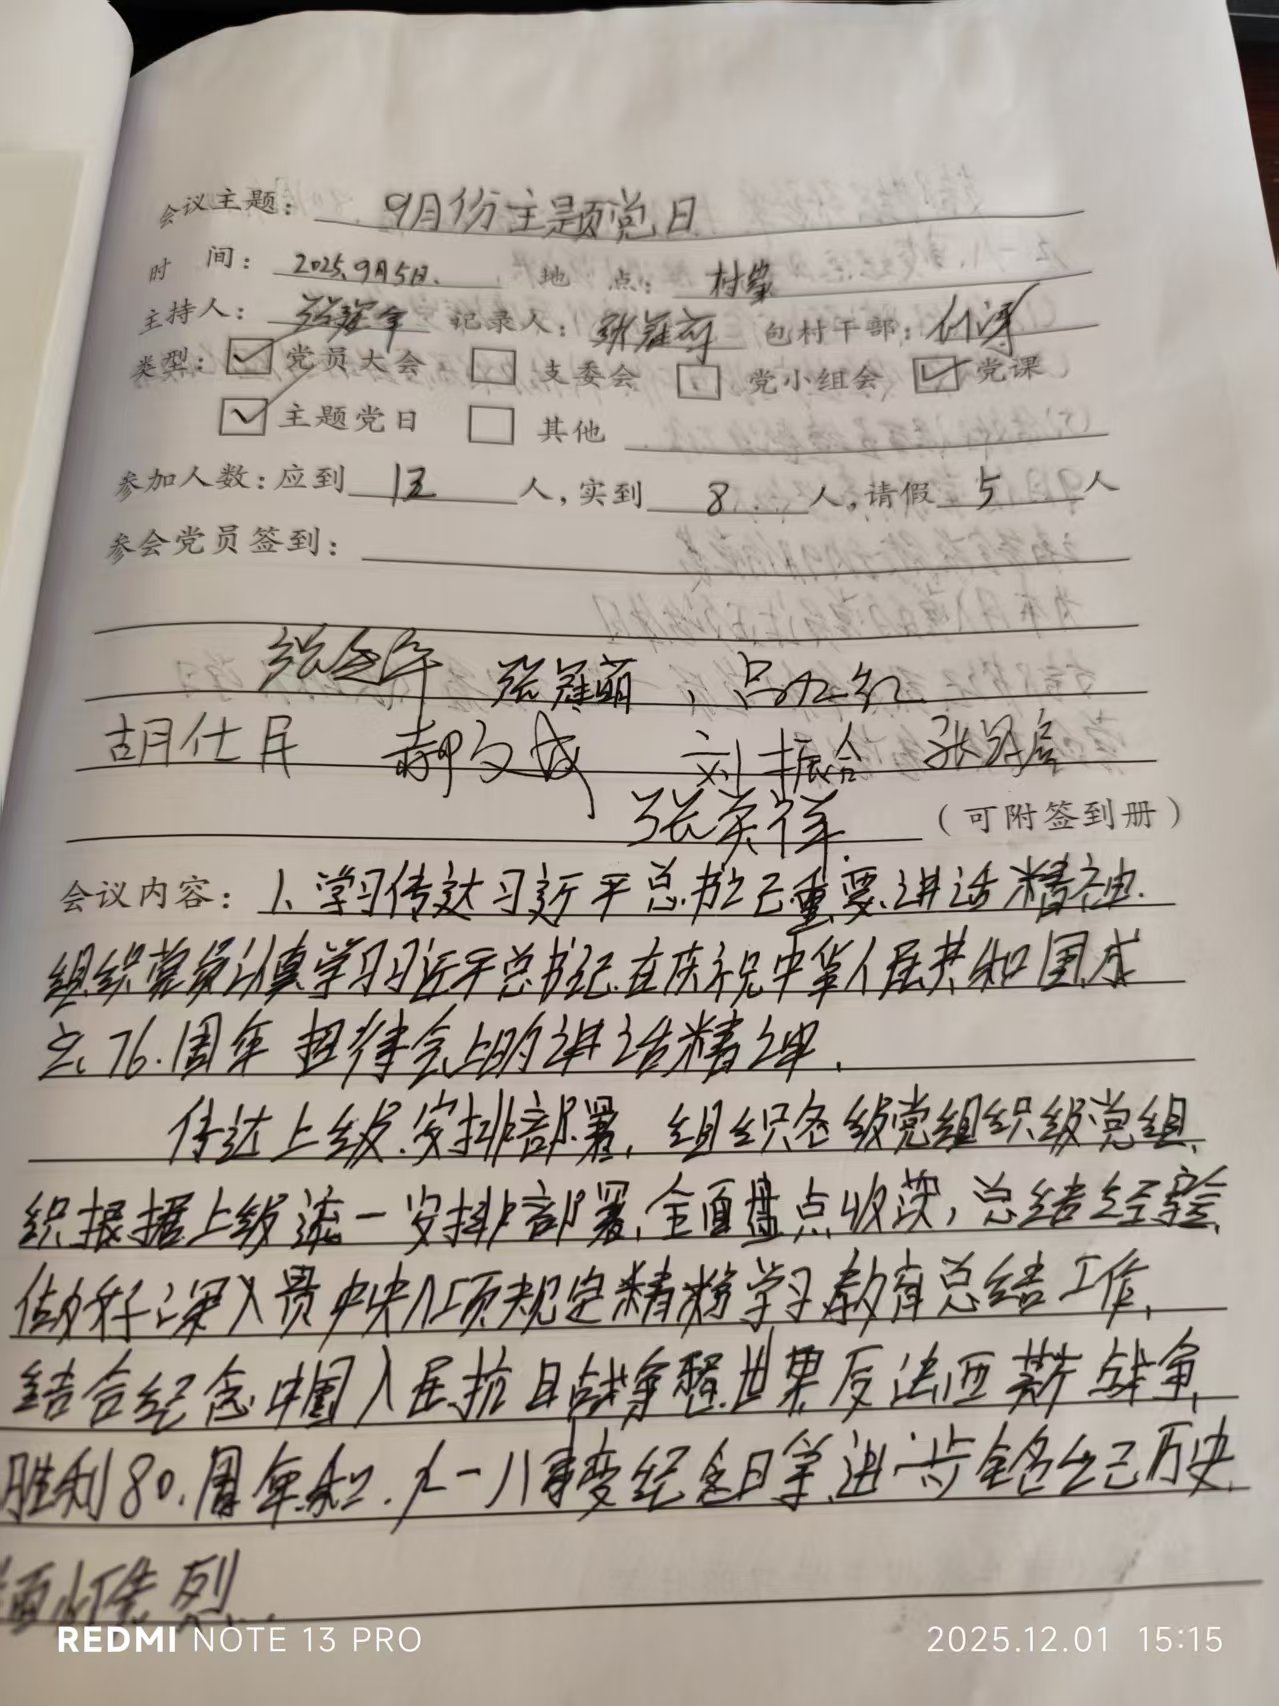 会议主题：9月份主题党日
时 间：2025.9月5日. 地 点：村党
主持人： 记录人： 包村干部：付涛
类型：☑党员大会 □支委会 □党小组会 ☑党课
☑主题党日 □其他
参加人数：应到 13 人，实到 8 人，请假 5 人
参会党员签到：
张冠萌、吕红
胡仕月 郝文成 刘振合 张
张英祥 （可附签到册）
会议内容：1、学习传达习近平总书记重要讲话精神.
组织党员认真学习习近平总书记在庆祝中华人民共和国成
立76.周年招待会上的讲话精神.
传达上级安排部署，组织各级党组织级党组
织根据上级统一安排部署，全面盘点收获，总结经验，
做好深入贯中央八项规定精神学习教育总结工作，
结合纪念中国人民抗日战争暨世界反法西斯战争
胜利80.周年和.九一八事变纪念日等，进一步铭记历史
缅怀先烈.
REDMI NOTE 13 PRO 2025.12.01 15:15